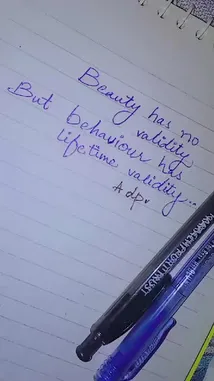 Beauty has no
validity
But behaviour has
lifetime validity...
Adpr